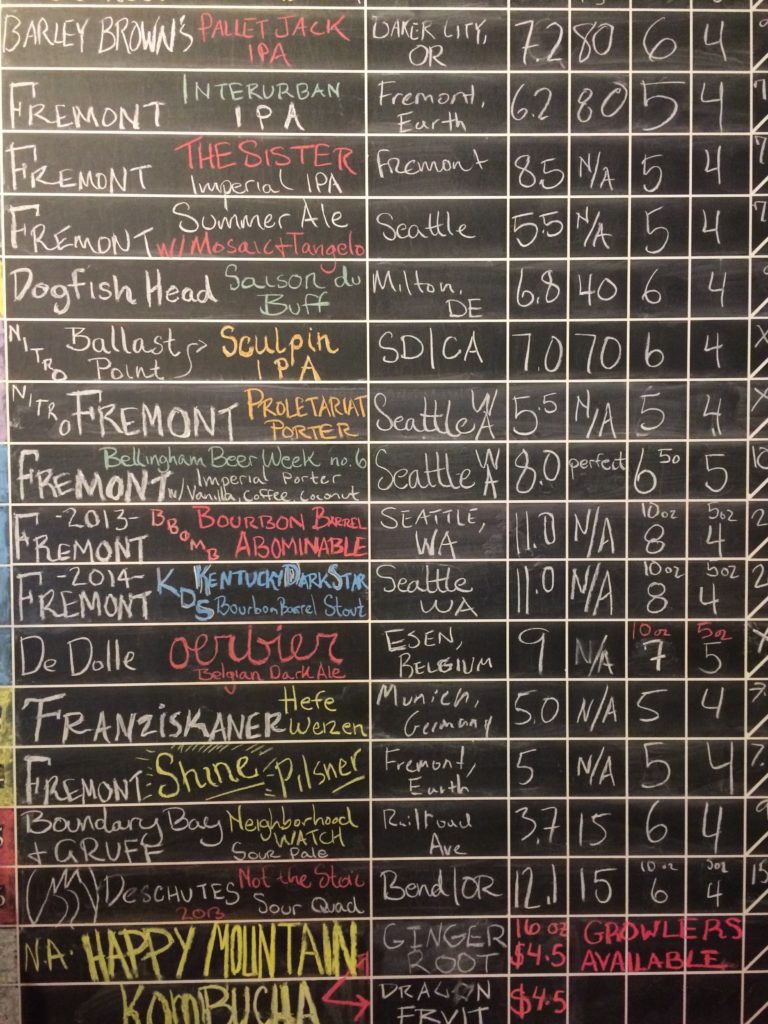 BARLEY BROWN'S PALLET JACK IPA BAKER CITY, OR 7.2 80 6 4
FREMONT INTERURBAN IPA Fremont, Earth 6.2 80 5 4
FREMONT THE SISTER Imperial IPA Fremont 8.5 N/A 5 4
FREMONT Summer Ale w/ Mosaic + Tangelo Seattle 5.5 N/A 5 4
Dogfish Head Saison du Buff Milton, DE 6.8 40 6 4
NITRO Ballast Point Sculpin IPA SD/CA 7.0 70 6 4
NITRO FREMONT PROLETARIAT PORTER Seattle WA 5.5 N/A 5 4
FREMONT Bellingham Beer Week no. 6 Imperial Porter w/ Vanilla, Coffee, Coconut Seattle WA 8.0 perfect 6 50 5
-2013- FREMONT BBOMB BOURBON BARREL ABOMINABLE SEATTLE, WA 11.0 N/A 10oz 8 5oz 4
-2014- FREMONT KDS KENTUCKY DARK STAR Bourbon Barrel Stout Seattle WA 11.0 N/A 10oz 8 5oz 4
De Dolle oerbier Belgian Dark Ale ESEN, BELGIUM 9 N/A 10oz 7 5oz 5
FRANZISKANER Hefe Weizen Munich, Germany 5.0 N/A 5 4
FREMONT Shine Pilsner Fremont, Earth 5 N/A 5 4
Boundary Bay + GRUFF Neighborhood WATCH Sour Pale Railroad Ave 3.7 15 6 4
DESCHUTES 2013 Not the Stoic Sour Quad Bend/OR 12.1 15 10 oz 6 5oz 4
N.A. HAPPY MOUNTAIN GINGER ROOT 16 oz $4.5 GROWLERS AVAILABLE
KOMBUCHA DRAGON FRUIT $4.5